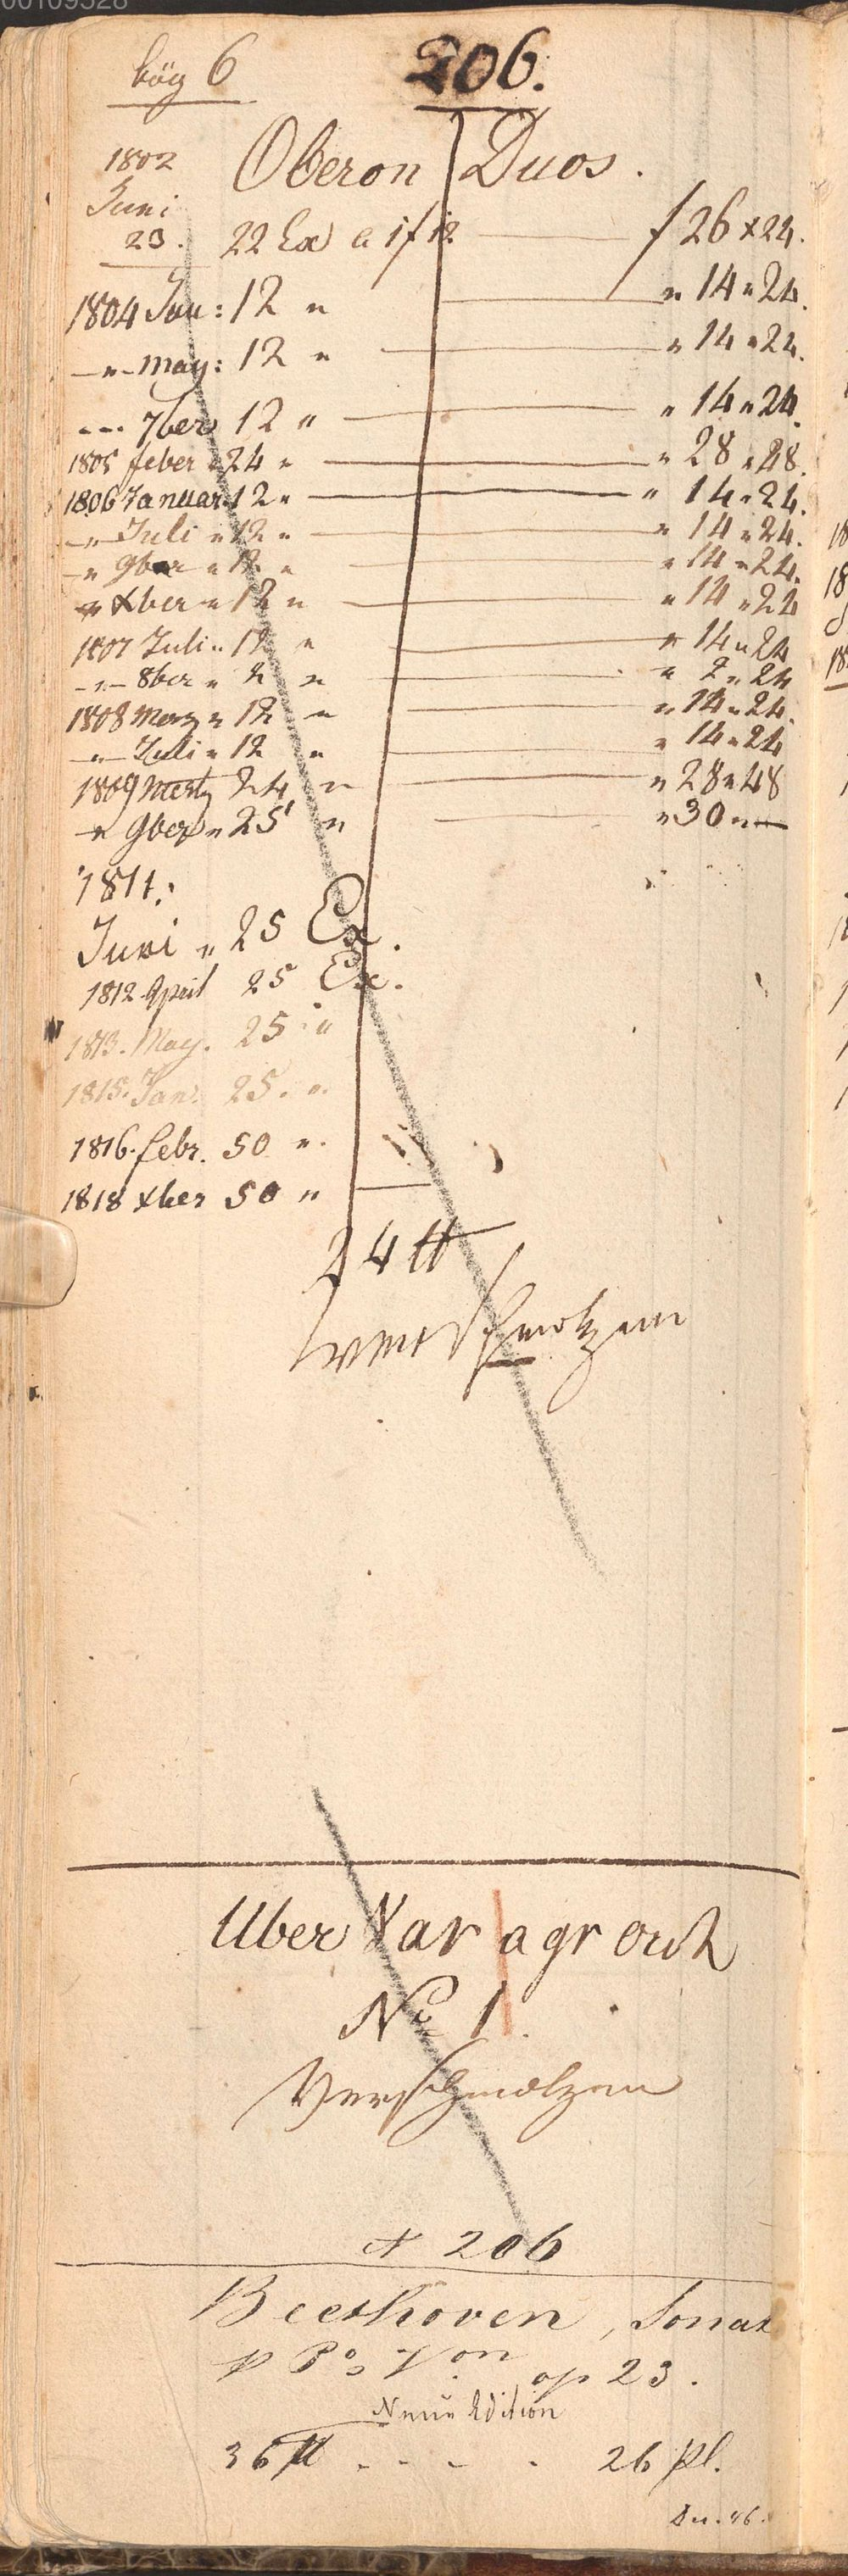 00109528
bög 6 206.
1802 Oberon Duos.
Juni
23. 22 Ex a 1f12 f 26 x 24.
1804 Jan: 12 " " 14 " 24.
—"— May: 12 " " 14 " 24.
--- 7ber 12 " " 14 " 24.
1805 feber " 24 " " 28 " 48.
1806 Januar 12 " " 14 " 24.
—"— Juli " 12 " " 14 " 24.
—" 9ber " 12 " " 14 " 24.
—" Xber " 12 " " 14 " 24
1807 Juli " 12 " " 14 " 24
—"— 8ber " 2 " " 2 " 24
1808 Merz " 12 " " 14 " 24.
—"— Juli " 12 " " 14 " 24
1809 Mertz 24 " " 28 " 48
—" 9ber " 25 " " 30 " —
1811:
Juni " 25 Ex.
1812 April 25 Ex.
1813. May. 25 "
1815. Jan: 25. "
1816. febr. 50 ".
1818 xber 50 "
24 tt
verschmolzen
Uber Var a gr orch
No 1.
Verschmolzen
206
Beethoven, Sonat
p Po Von op 23.
Neue Edition
36 tt - - - - 26 pl.